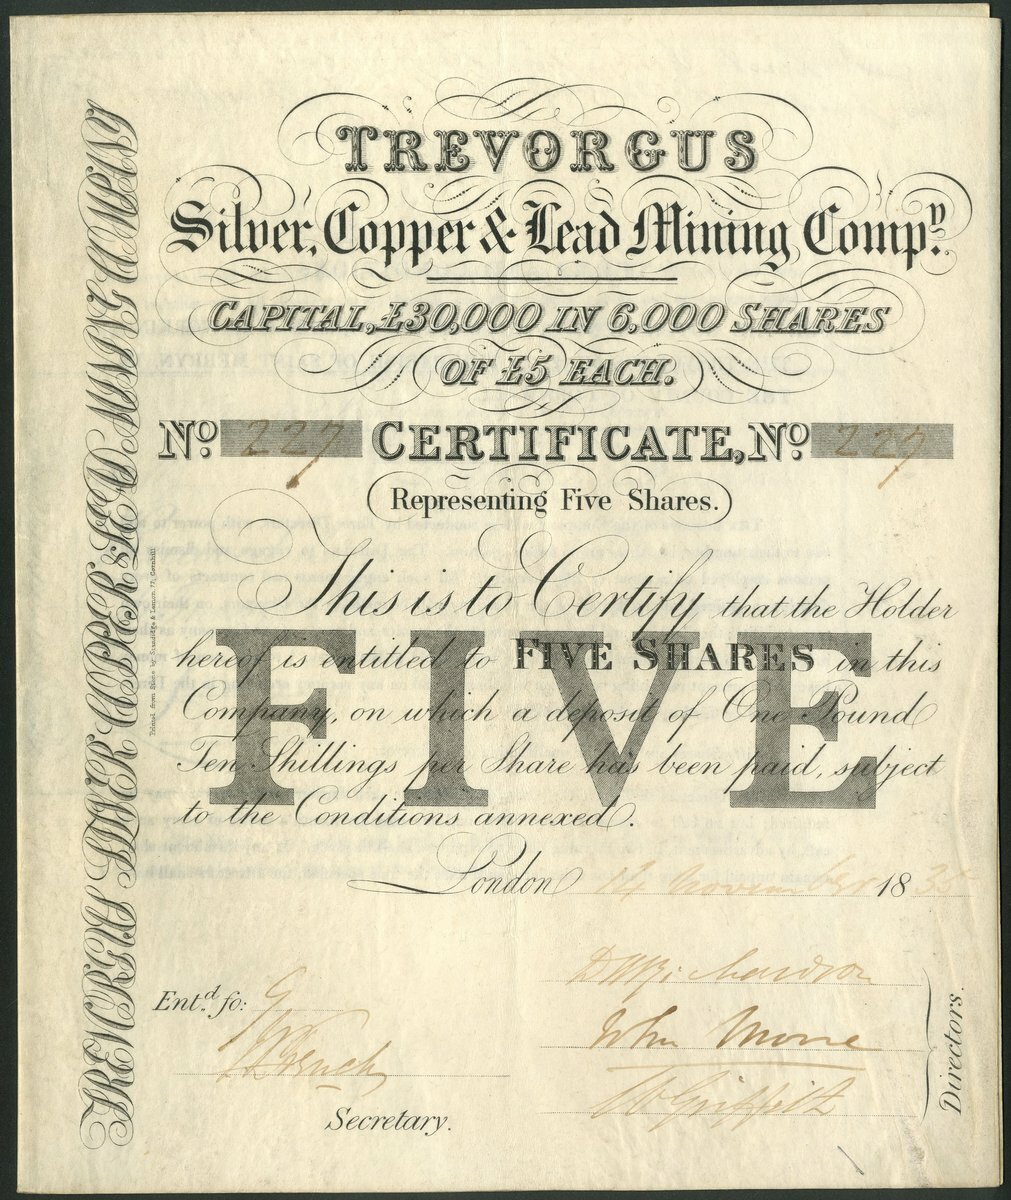 TREVORGUS
Silver, Copper & Lead Mining Compy.
CAPITAL, £30,000 IN 6,000 SHARES
OF £5 EACH.
No. 227 CERTIFICATE, No. 227
Representing Five Shares.
This is to Certify that the Holder
hereof is entitled to FIVE SHARES in this
Company, on which a deposit of One Pound
Ten Shillings per Share has been paid, subject
to the Conditions annexed.
FIVE
London 14 November 1835
Entd. fo: 9
French
Secretary.
Richardson
John Moore
Griffith
Directors.
TREVORGUS SILVER COPPER & LEAD MINING COMPANY
Printed from Stone by Standidge & Lemon, 77, Cornhill